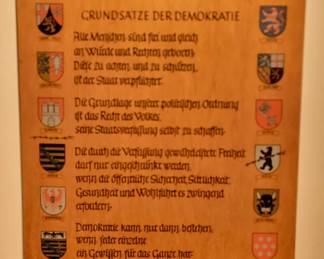 GRUNDSÄTZE DER DEMOKRATIE
Alle Menschen sind frei und gleich
an Würde und Rechten geboren.
Diese zu achten und zu schützen,
ist der Staat verpflichtet.
Die Grundlage unserer politischen Ordnung
ist das Recht des Volkes,
seine Staatsverfassung selbst zu schaffen.
Die durch die Verfassung gewährleistete Freiheit
darf nur eingeschränkt werden,
wenn die öffentliche Sicherheit, Sittlichkeit,
Gesundheit und Wohlfahrt es zwingend
erfordern.
Demokratie kann nur dann bestehen,
wenn jeder einzelne
ein Gewissen für das Ganze hat.